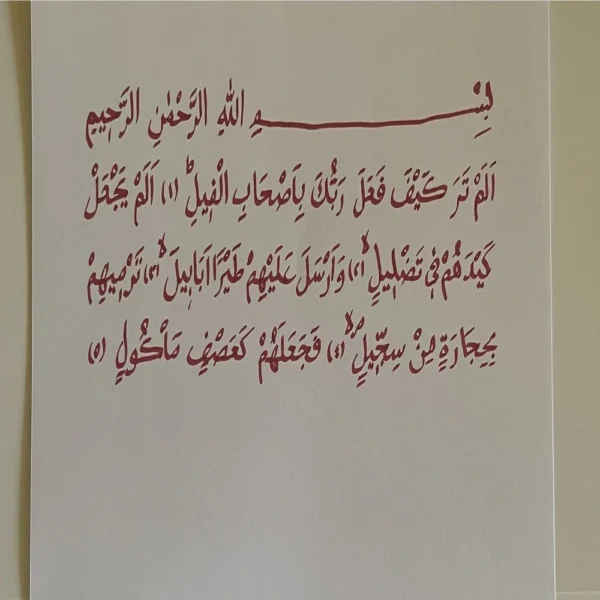 بِسْـــــــــــمِ اللهِ الرَّحْمٰنِ الرَّحِيمِ
اَلَمْ تَرَ كَيْفَ فَعَلَ رَبُّكَ بِاَصْحَابِ الْفِيلِؕ (١) اَلَمْ يَجْعَلْ
كَيْدَهُمْ فِي تَضْلِيلٍۙ (٢) وَاَرْسَلَ عَلَيْهِمْ طَيْرًا اَبَابِيلَۙ (٣) تَرْمِيهِمْ
بِحِجَارَةٍ مِنْ سِجِّيلٍۙ (٤) فَجَعَلَهُمْ كَعَصْفٍ مَاْكُولٍ (٥)